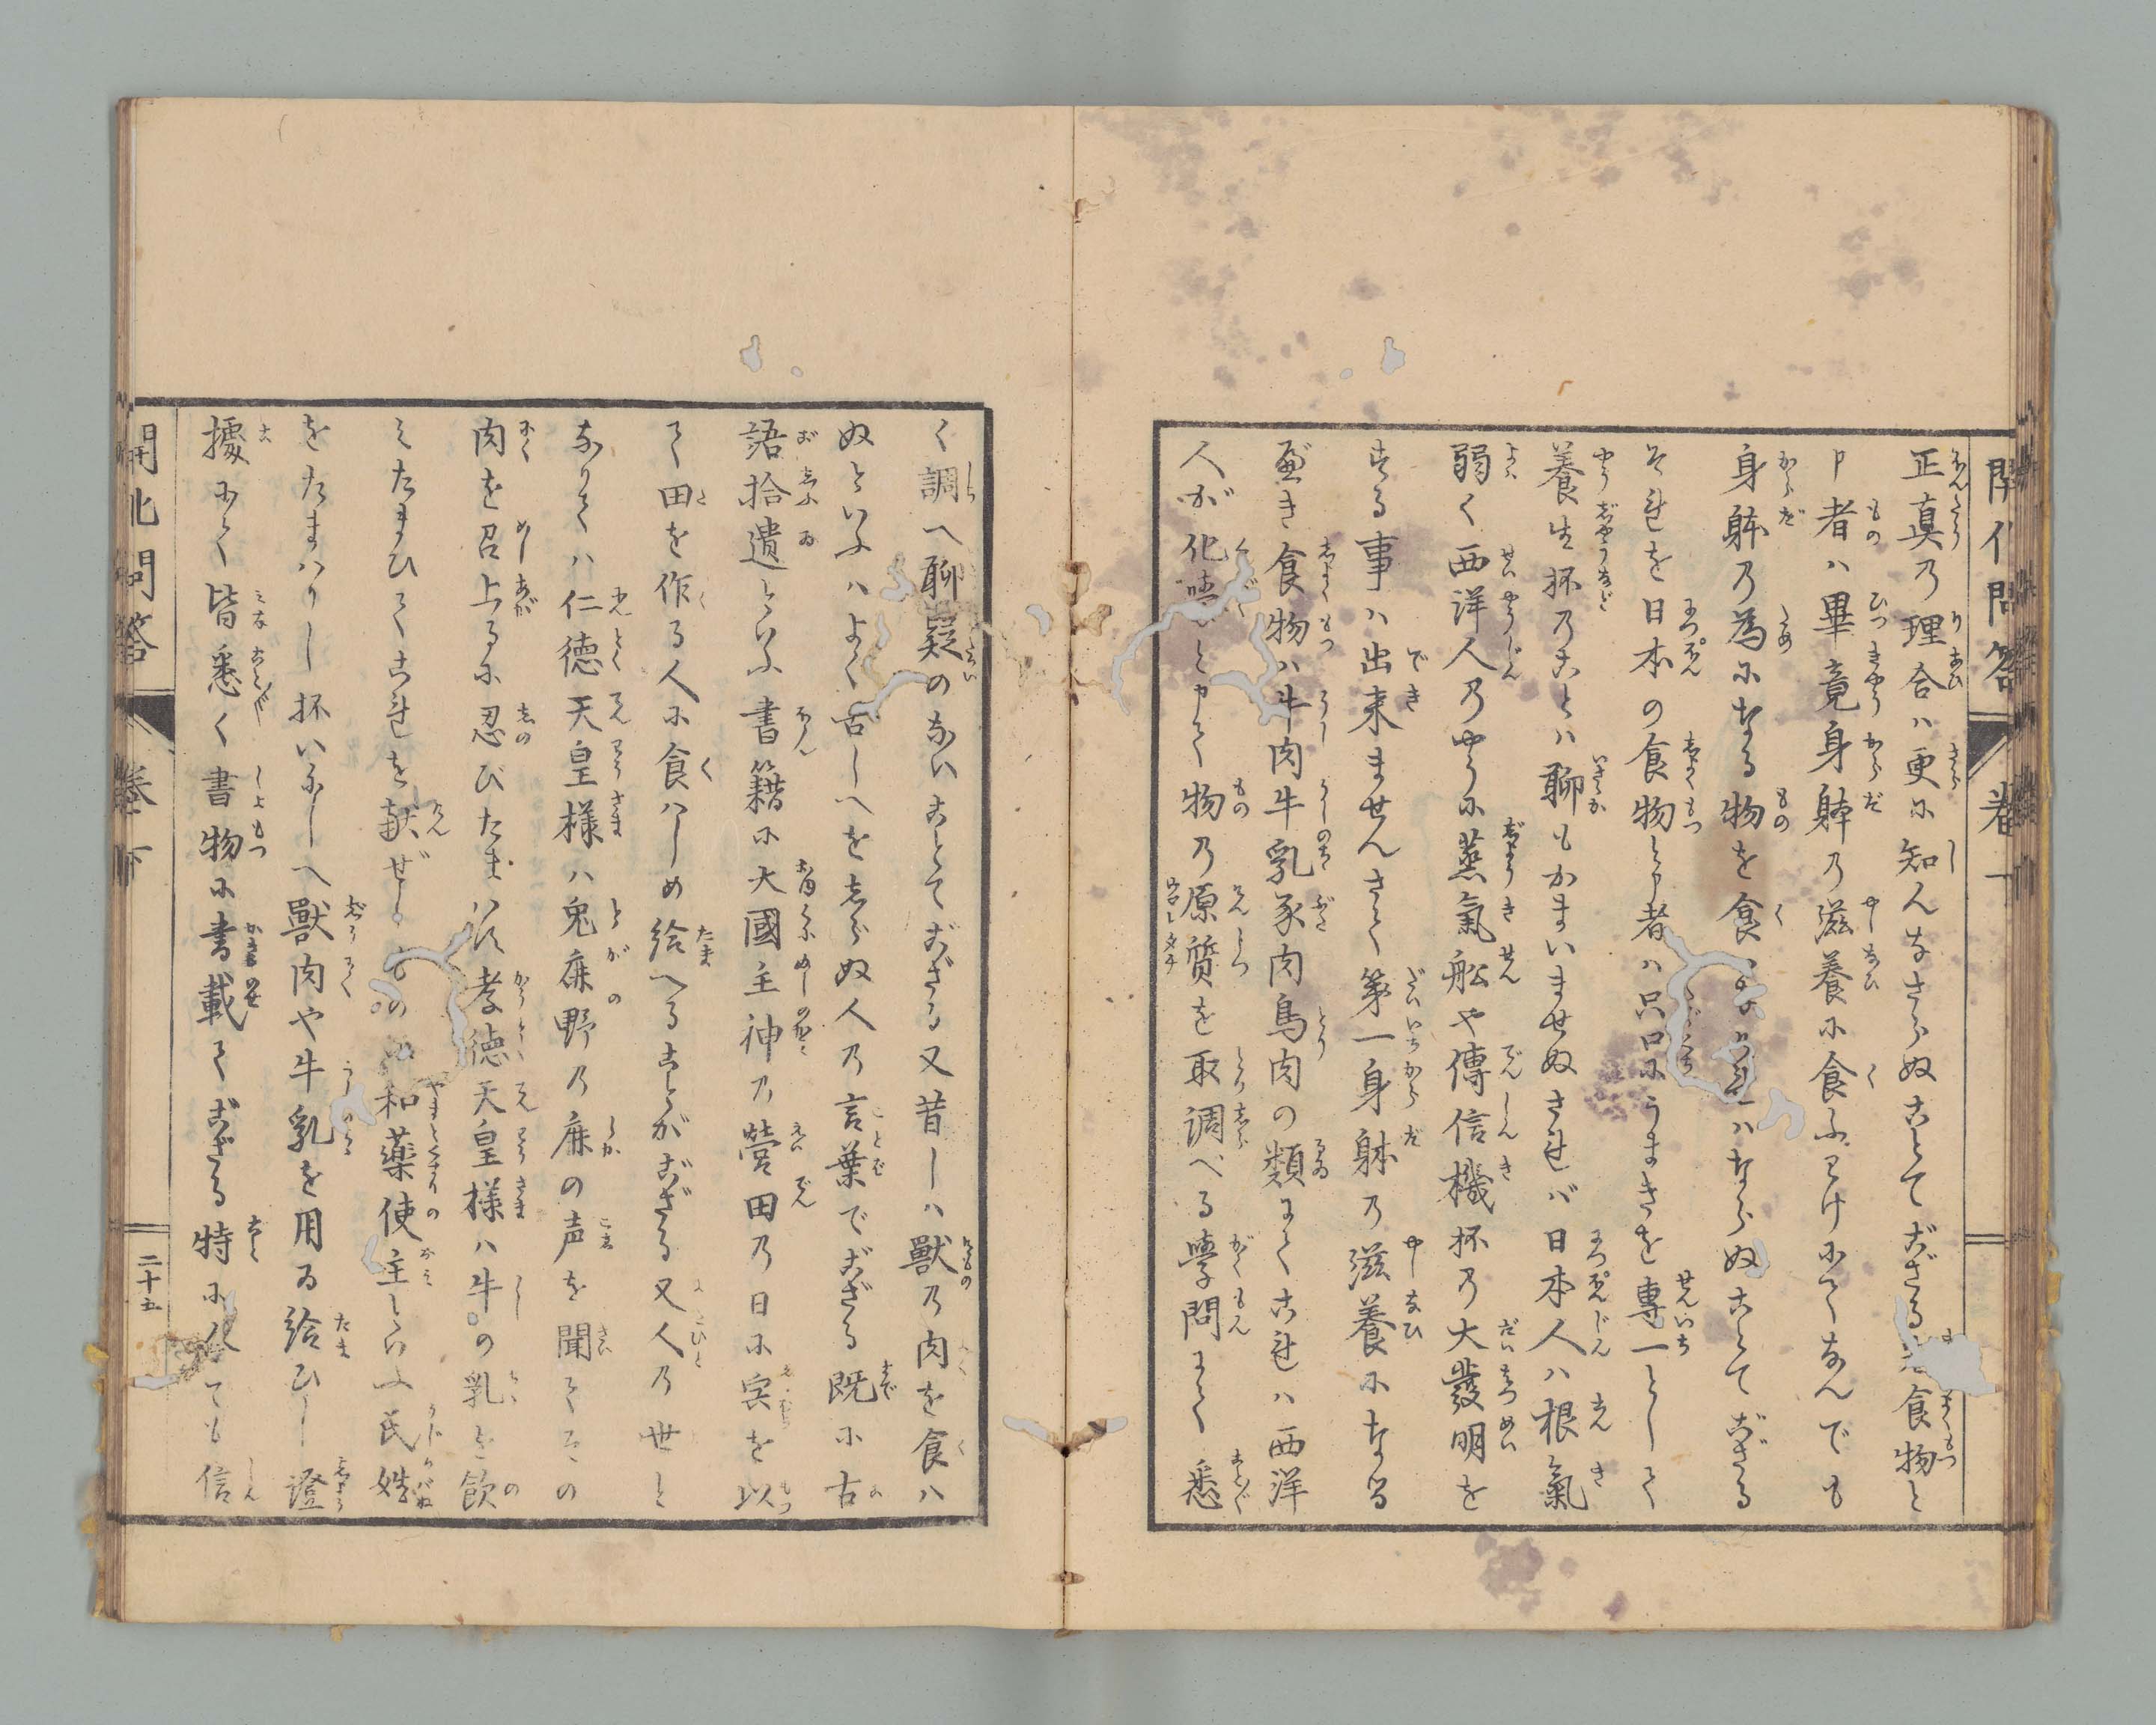 開化問答 卷下
正真乃理合ハ更に知んなさらぬことてござる 食物と
申者ハ畢竟身躰乃滋養に食ふわけにてなんでも
身躰乃為になる物を食 ハならぬことてござる
それを日本の食物と申者ハ只口にうまきを專一として
養生抔乃ことハ聊もかまいませぬされバ日本人ハ根氣
弱く西洋人乃やうに蒸氣舩や傳信機抔乃大發明を
する事ハ出来ませんさて第一身躰乃滋養になる
べき食物ハ牛肉牛乳豕肉鳥肉の類にてこれハ西洋
人が化學と申て物乃原質を取調べる學問にて悉
く調へ聊疑のないことてござる又昔しハ獣乃肉を食ハ
ぬといふハよく古しへをしらぬ人乃言葉でござる既に古
語拾遺といふ書籍に大國主神乃營田乃日に宍を以
て田を作る人に食ハしめ給へることがござる又人乃世と
なりてハ仁徳天皇様ハ兎餓野乃鹿の声を聞てその
肉を召上るに忍びたまハず孝徳天皇様ハ牛の乳を飲
ミたまひてこれを献ぜしもの 和薬使主といふ氏姓
をたまハりし抔いにしへ獸肉や牛乳を用ゐ給ひし證
據にて皆悉く書物に書載てござる特に人ても信
開化問答 卷下 二十五